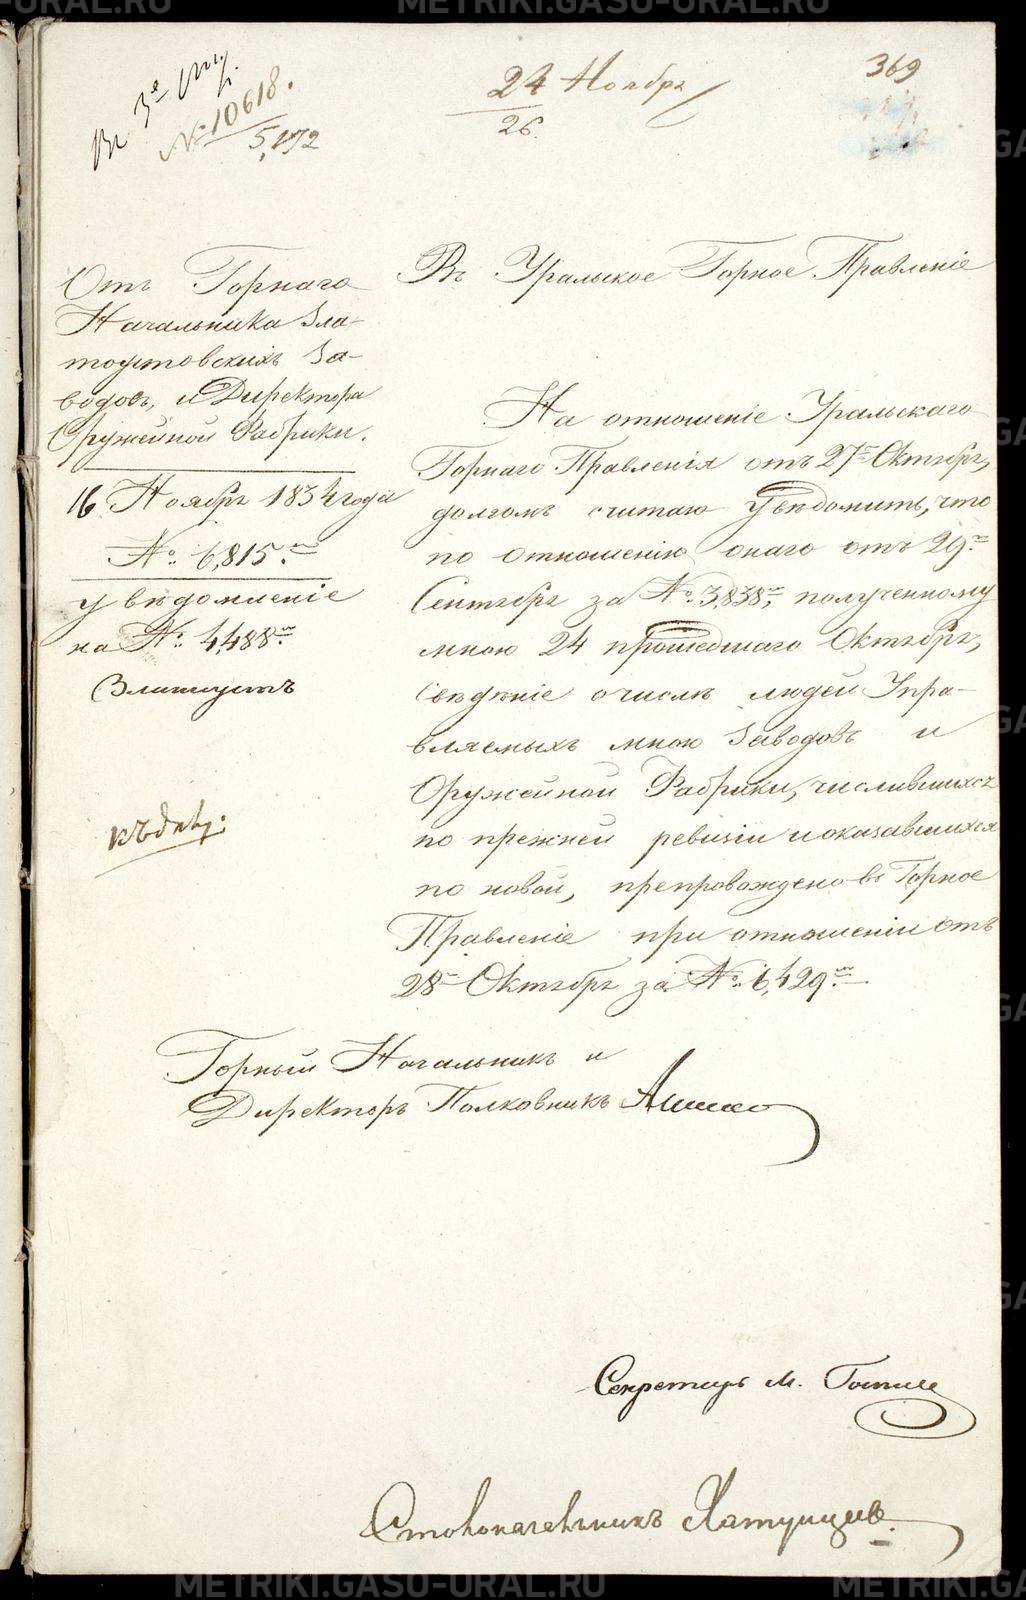 METRIKI.GASO-URAL.RU
Въ 3е
№ 10618.
5,172
24 Ноября
26.
369
Отъ Горнаго
Начальника Зла-
тоустовскихъ За-
водовъ, и Директора
Оружейной Фабрики.
16 Ноября 1834 года
№ 6,815.
увѣдомленіе
на № 4,488.
Златоустъ
къ дѣлу.
Въ Уральское Горное Правленіе
На отношеніе Уральскаго
Горнаго Правленія отъ 27 Октября,
долгомъ считаю увѣдомить, что
по отношенію онаго отъ 29.
Сентября за № 3,838, полученному
мною 24 прошедшаго Октября,
Свѣдѣніе о числѣ людей Упра-
вляемыхъ мною Заводовъ и
Оружейной Фабрики, числившихся
по прежней ревизіи и оказавшихся
по новой, препровождено въ Горное
Правленіе при отношеніи отъ
28 Октября за № 6,429.
Горный Начальникъ и
Директоръ Полковникъ
Секретарь М.
Столоначальникъ
METRIKI.GASO-URAL.RU